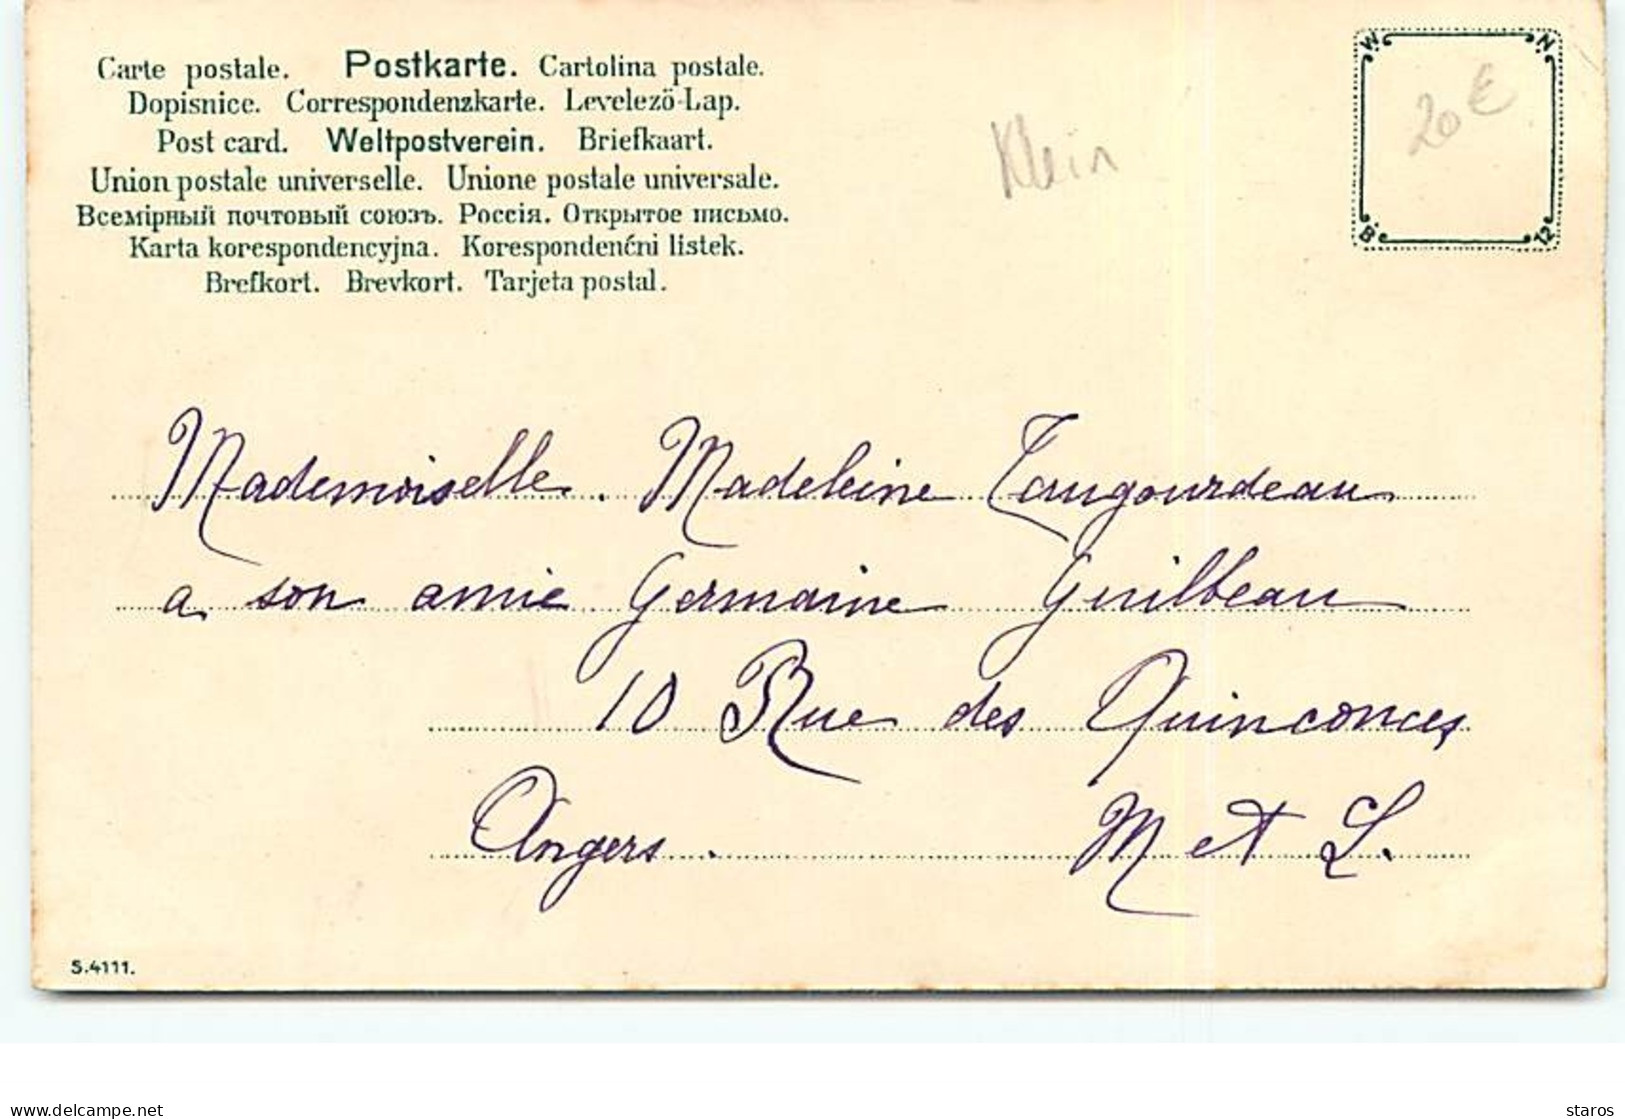 Carte postale. Postkarte. Cartolina postale.
Dopisnice. Correspondenzkarte. Levelező-Lap.
Post card. Weltpostverein. Briefkaart.
Union postale universelle. Unione postale universale.
Всемірный почтовый союзъ. Россія. Открытое письмо.
Karta korespondencyjna. Korespondenčni listek.
Brefkort. Brevkort. Tarjeta postal.
Klein
W N
20 €
B 12
Mademoiselle. Madeleine Taugourdeau
a son amie Germaine Guilbeau
10 Rue des Quinconces
Angers. M et L.
S.4111.
delcampe.net
staros